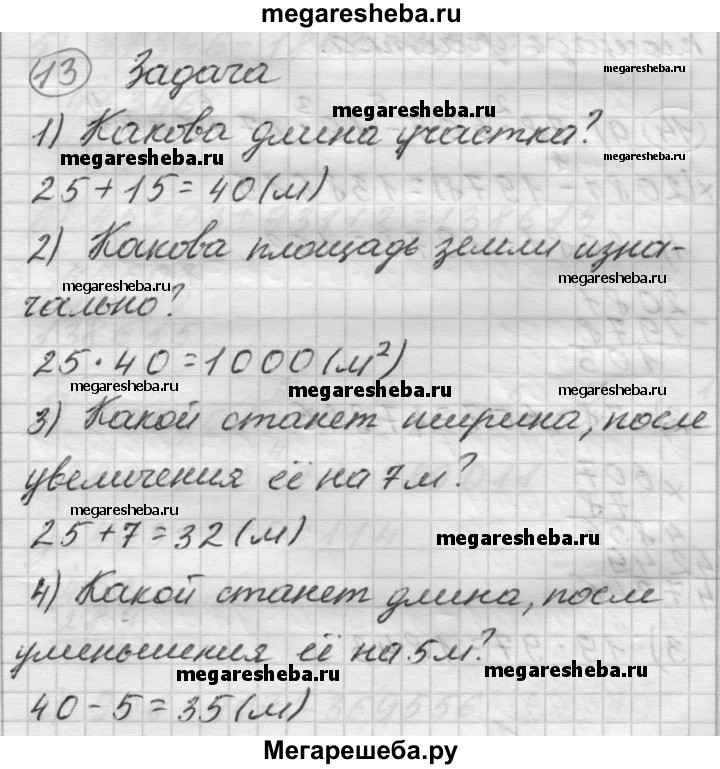 megaresheba.ru
13 Задача
megaresheba.ru
megaresheba.ru
1) Какова длина участка?
megaresheba.ru
25 + 15 = 40 (м)
2) Какова площадь земли изна-
megaresheba.ru
megaresheba.ru
чально?
25 · 40 = 1000 (м²)
megaresheba.ru
megaresheba.ru
megaresheba.ru
3) Какой станет ширина, после
увеличения её на 7 м?
megaresheba.ru
25 + 7 = 32 (м)
megaresheba.ru
4) Какой станет длина, после
уменьшения её на 5 м?
megaresheba.ru
megaresheba.ru
40 - 5 = 35 (м)
Мегарешеба.ру